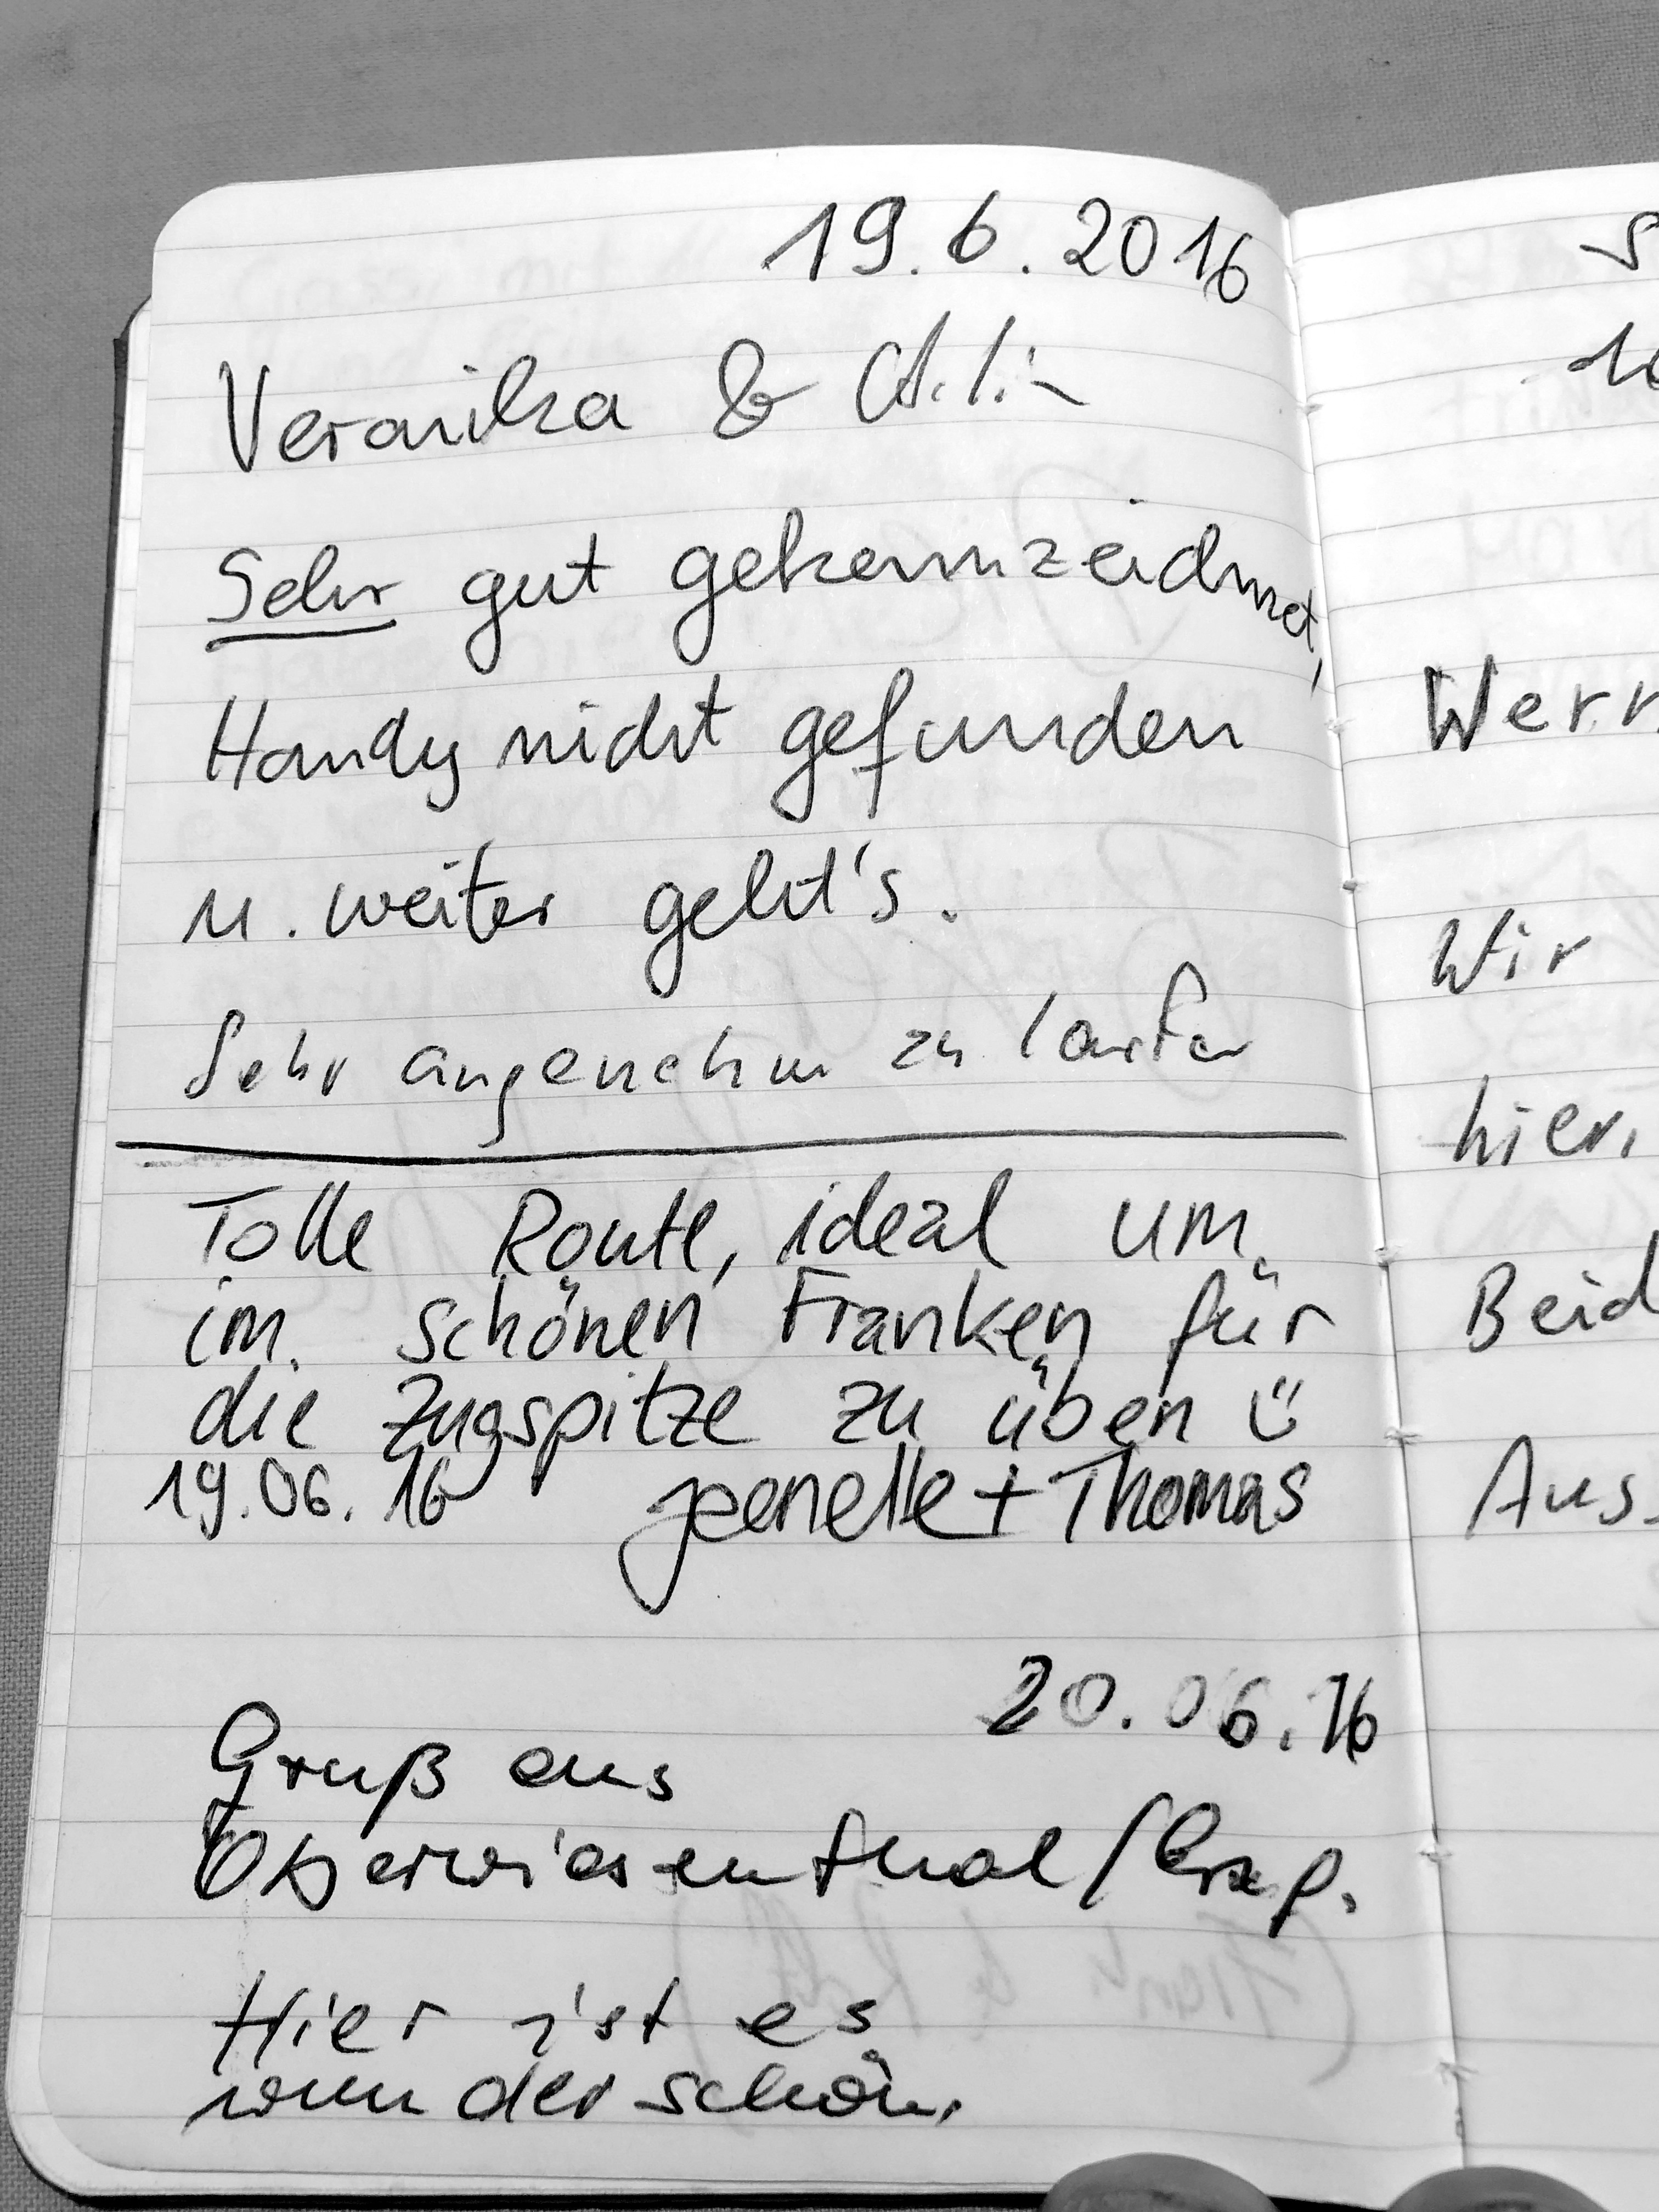 19.6.2016
Veronika &
Sehr gut gekennzeichnet,
Handy nicht gefunden
u. weiter geht's.
Sehr angenehm zu laufen
Tolle Route, ideal um
im schönen Franken für
die Zugspitze zu üben ü
19.06.16 Jeenelle + Thomas
20.06.16
Gruß aus
Oberwiesenthal/Erzg.
Hier ist es
wunderschön.
Wir
hier,